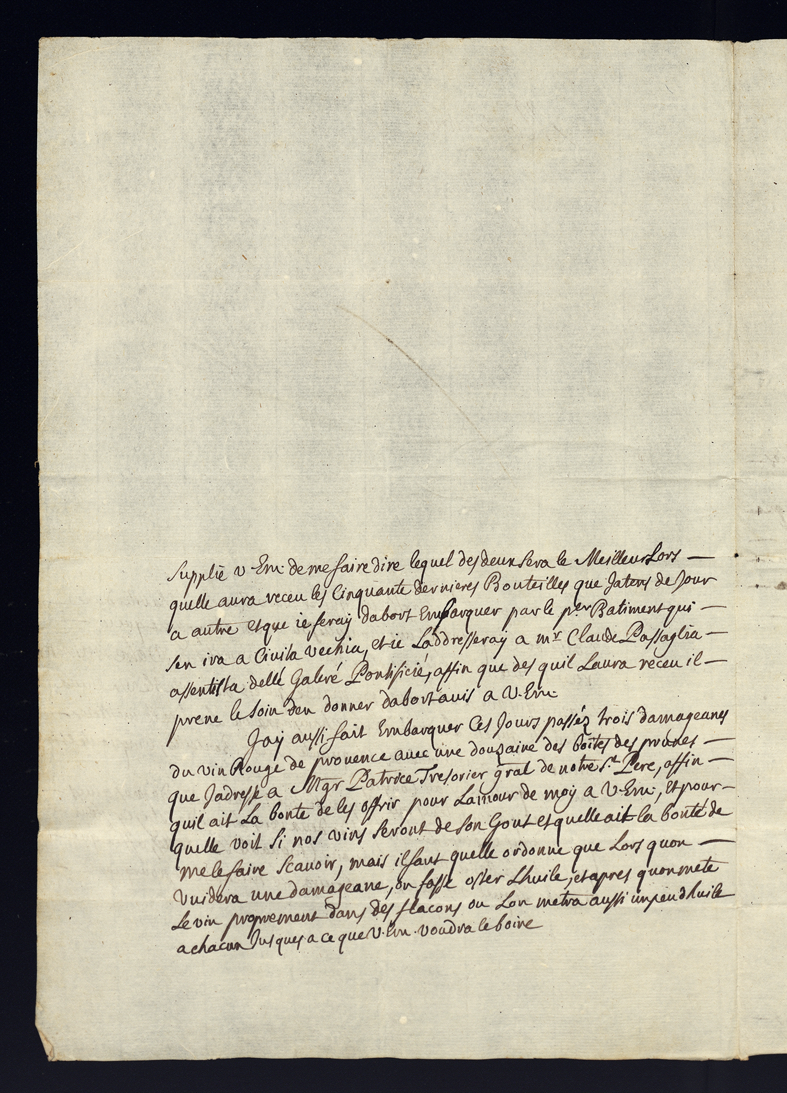 supplie v Em. de me faire dire lequel des deux sera le Meilleur Lors —
quelle aura receu les Cinquante dernieres Bouteilles que Jatens de Jour
a autre et que ie feray dabort Embarquer par le per Batiment qui —
sen ira a Civita Vechia, et ie Laddresseray a mr. Claude Passaglia —
assentista delle Galere Pontificie, affin que des quil Laura receu il —
prene le soin den donner dabort auis a V. Em.
Jay aussi fait Embarquer Ces Jours passéz trois damageanes
du vin Rouge de prouence auec une douzaine des boites des prunes —
que Jadresse a Mgr Patrice Tresorier gral de notre St. Pere, affin —
quil ait La bonte de les offrir pour Lamour de moy a V. Em., Et pour-
quelle voit si nos vins seront de son Gout et quelle ait la bonté de
me le faire Scauoir, mais il faut quelle ordonne que Lors quon —
vuidera une damageane, on fasse oster Lhuile, et apres quon mete
Le vin proprement dans des flacons ou Lon metra aussi un peu dhuile
a chacun Jusques a ce que V. Em. voudra le boire